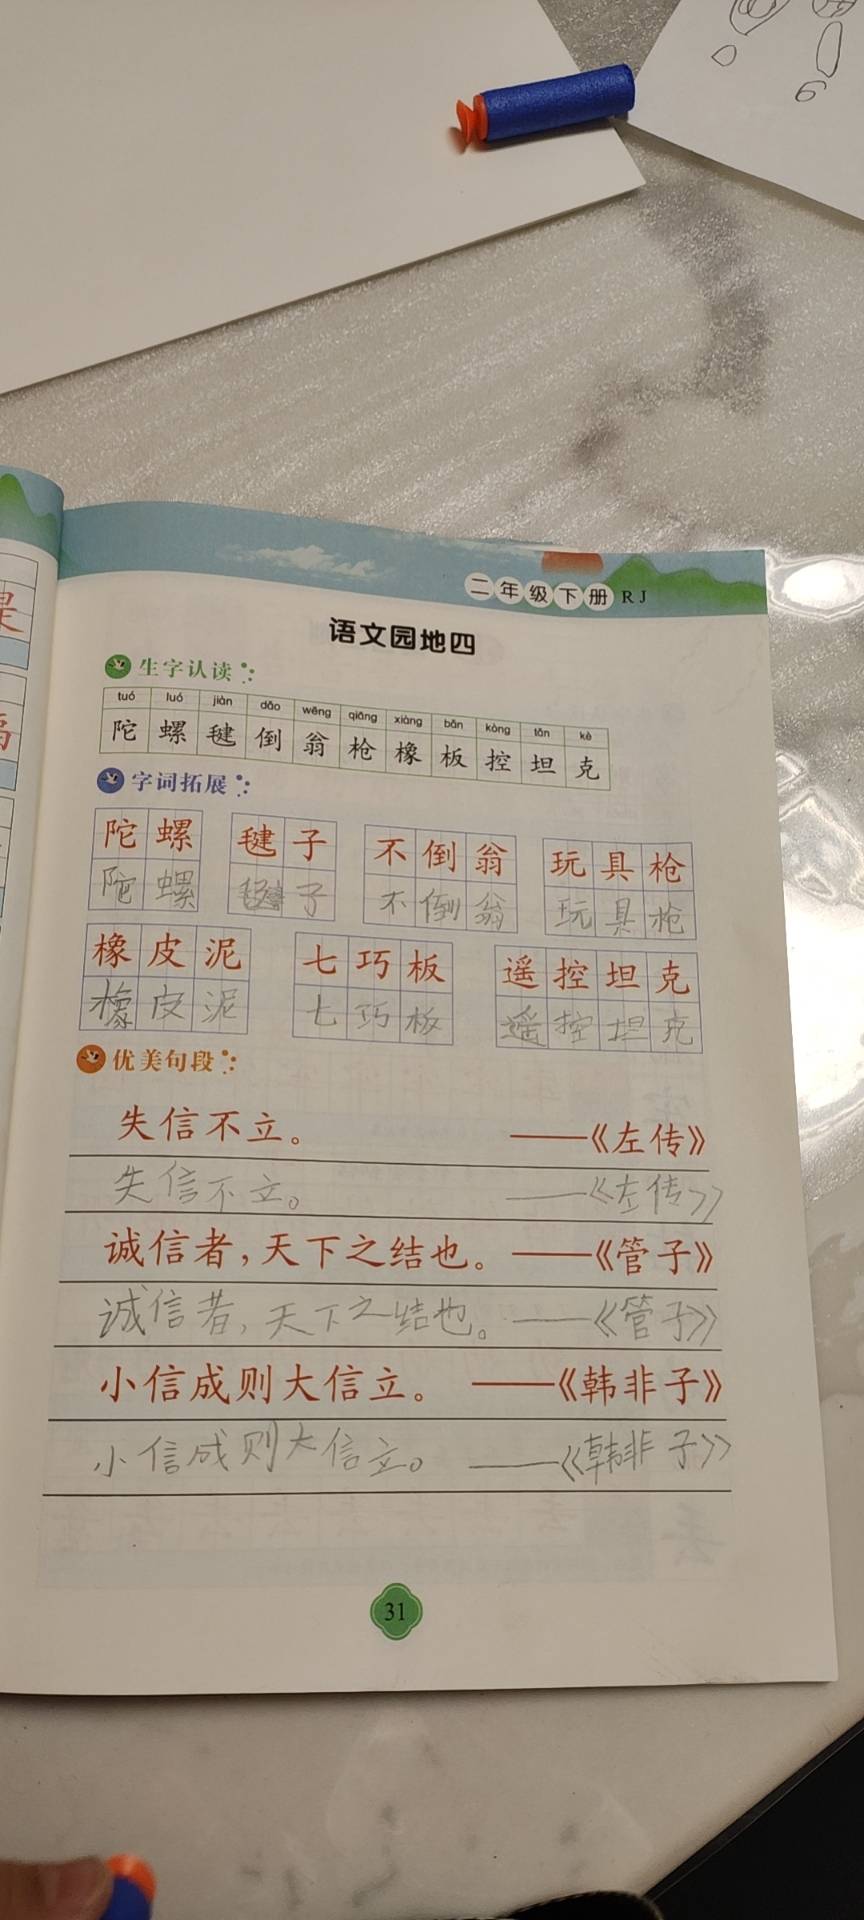 二年级下册 RJ
语文园地四
生字认读
tuó luó jiàn dǎo wēng qiāng xiàng bǎn kòng tǎn kè
陀 螺 毽 倒 翁 枪 橡 板 控 坦 克
字词拓展
陀螺 毽子 不倒翁 玩具枪
陀螺 毽子 不倒翁 玩具枪
橡皮泥 七巧板 遥控坦克
橡皮泥 七巧板 遥控坦克
优美句段
失信不立。 ——《左传》
失信不立。 ——《左传》
诚信者，天下之结也。——《管子》
诚信者，天下之结也。——《管子》
小信成则大信立。 ——《韩非子》
小信成则大信立。 ——《韩非子》
31